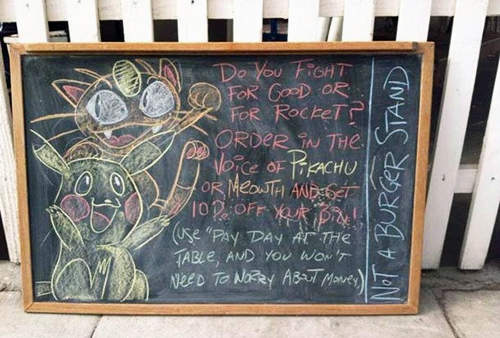 Do You Fight
For Good or
For Rocket?
Order in the
Voice of Pikachu
or Meowth and get
10% off your bill!
(use "Pay Day at the
table, and you won't
need to worry about money)
Not a Burger Stand